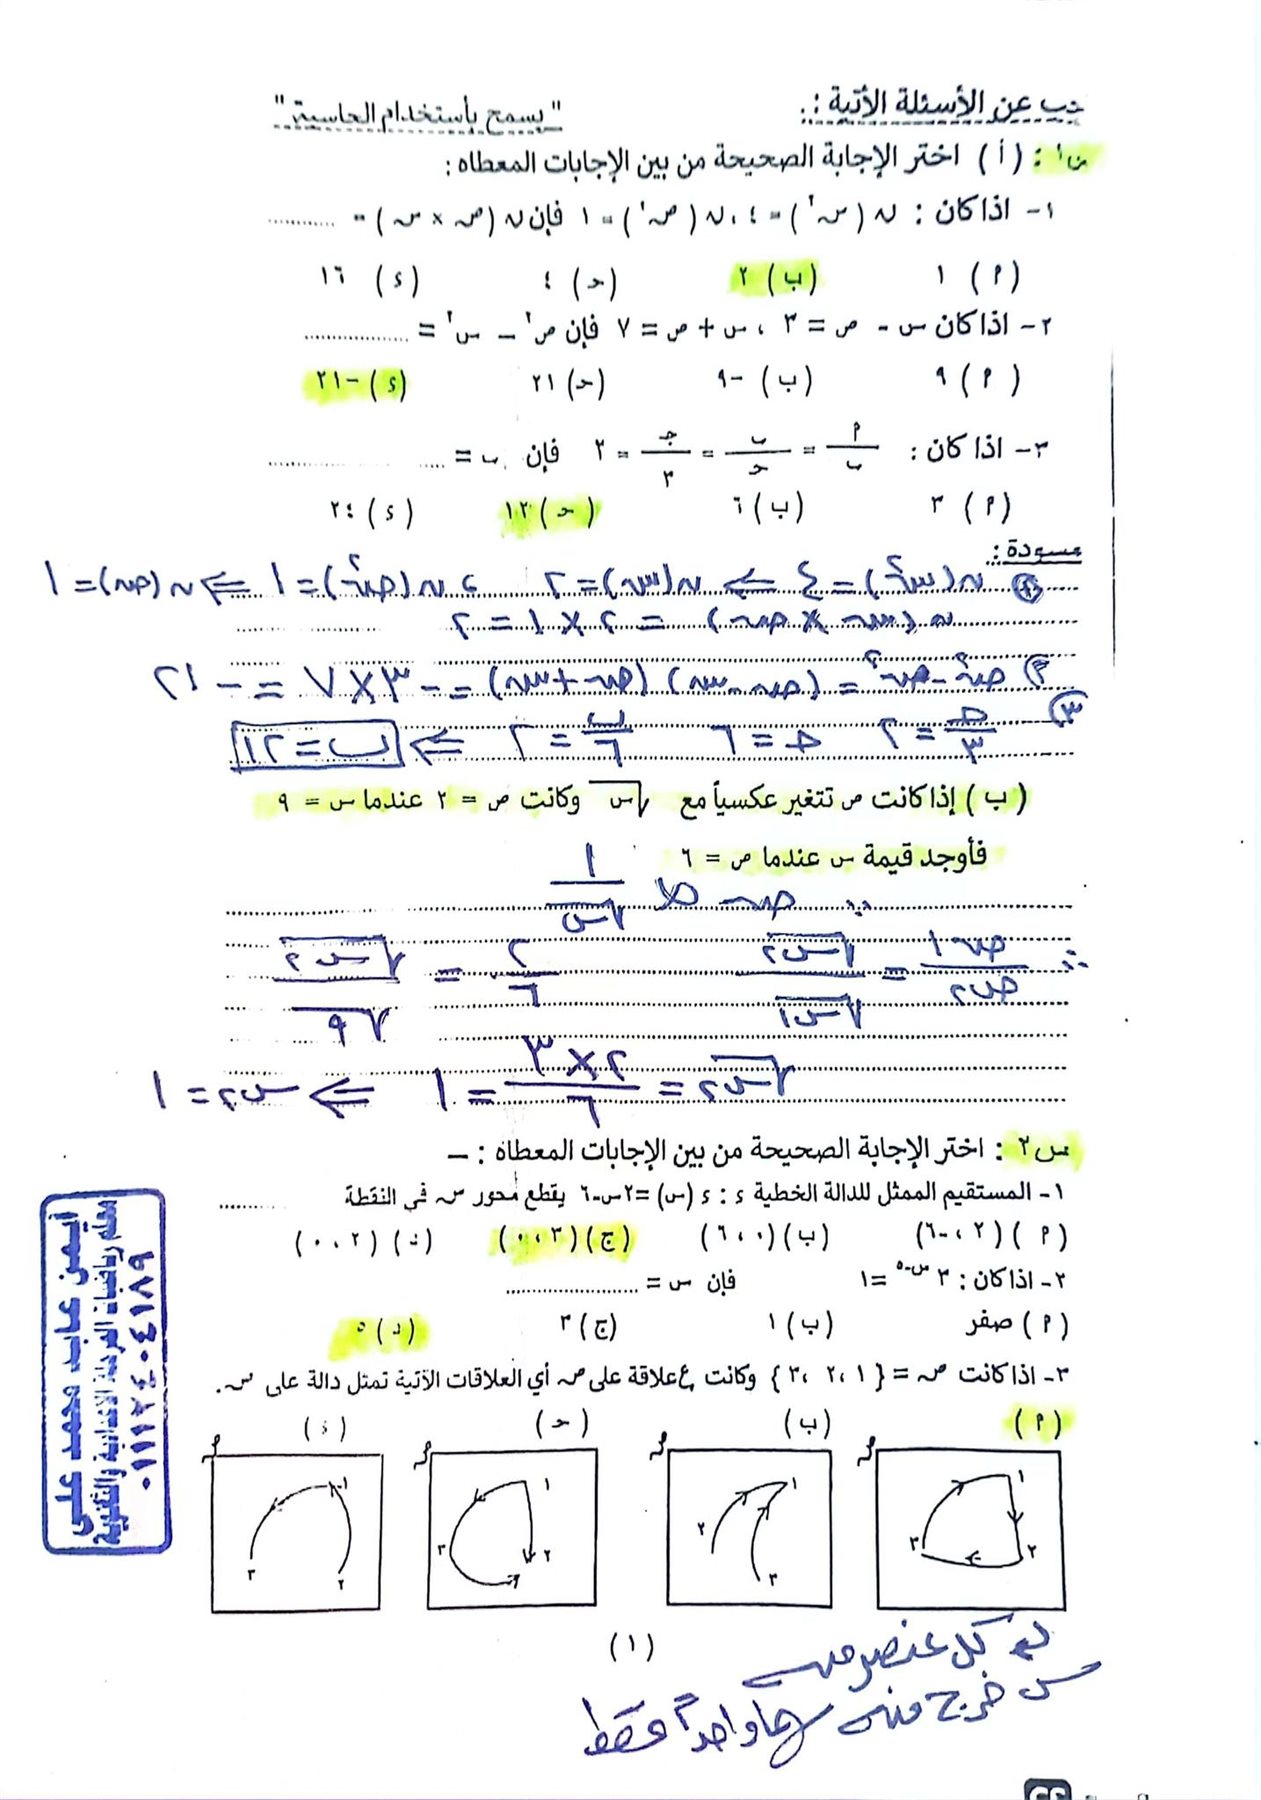 جب عن الأسئلة الأتية :.
" يسمح بأستخدام الحاسبة "
س١ : ( أ ) اختر الإجابة الصحيحة من بين الإجابات المعطاه :
١- اذا كان : ن ( س٢ ) = ٤ ، ن ( ص٢ ) = ١ فإن ن ( ص × س ) = ............
( م ) ١ ( ب ) ٢ ( حـ ) ٤ ( ء ) ١٦
٢- اذا كان س - ص = ٣ ، س + ص = ٧ فإن ص٢ – س٢ = ................
( م ) ٩ ( ب ) -٩ ( حـ ) ٢١ ( ء ) -٢١
٣- اذا كان : م/ب = ب/حـ = جـ/٣ = ٢ فإن ب = ................
( م ) ٣ ( ب ) ٦ ( حـ ) ١٢ ( ء ) ٢٤
مسودة :
ن (س٢) = ٤ ⇐ ن (س) = ٢ ، ن (ص٢) = ١ ⇐ ن (ص) = ١
ن (س × ص) = ٢ × ١ = ٢
ص٢ - س٢ = (ص - س) (ص + س) = - ٣ × ٧ = - ٢١
٣ حـ/٣ = ٢ حـ = ٦ ب/٦ = ٢ ⇐ ب = ١٢
( ب ) إذا كانت ص تتغير عكسياً مع √س وكانت ص = ٢ عندما س = ٩
فأوجد قيمة س عندما ص = ٦
∵ ص ∝ ١/√س
∴ ص١/ص٢ = √س٢/√س١ ٢/٦ = √س٢/√٩
√س٢ = ٢ × ٣/٦ = ١ ⇐ س٢ = ١
س٢ : اختر الإجابة الصحيحة من بين الإجابات المعطاه : –
١- المستقيم الممثل للدالة الخطية ء : ء (س) = ٢س-٦ يقطع محور س في النقطة ............
( م ) ( ٢ ، -٦ ) ( ب ) ( ٠ ، ٦ ) ( ج ) ( ٣ ، ٠ ) ( د ) ( ٢ ، ٠ )
٢- اذا كان : ٣ س-٥ = ١ فإن س = ....................
( م ) صفر ( ب ) ١ ( ج ) ٣ ( د ) ٥
٣- اذا كانت س = { ١ ، ٢ ، ٣ } وكانت ع علاقة على س أي العلاقات الآتية تمثل دالة على س .
( م ) ( ب ) ( حـ ) ( ء )
١ ٢ ٣
١ ٢ ٣
١ ٢ ٣
١ ٢ ٣
( ١ )
كل عنصر من
س خرج منه سهما واحداً فقط
أيمن عابد محمد على
معلم رياضيات المرحلة الاعدادية والثانوية
٠١١١٢٤٠٤١٨٩